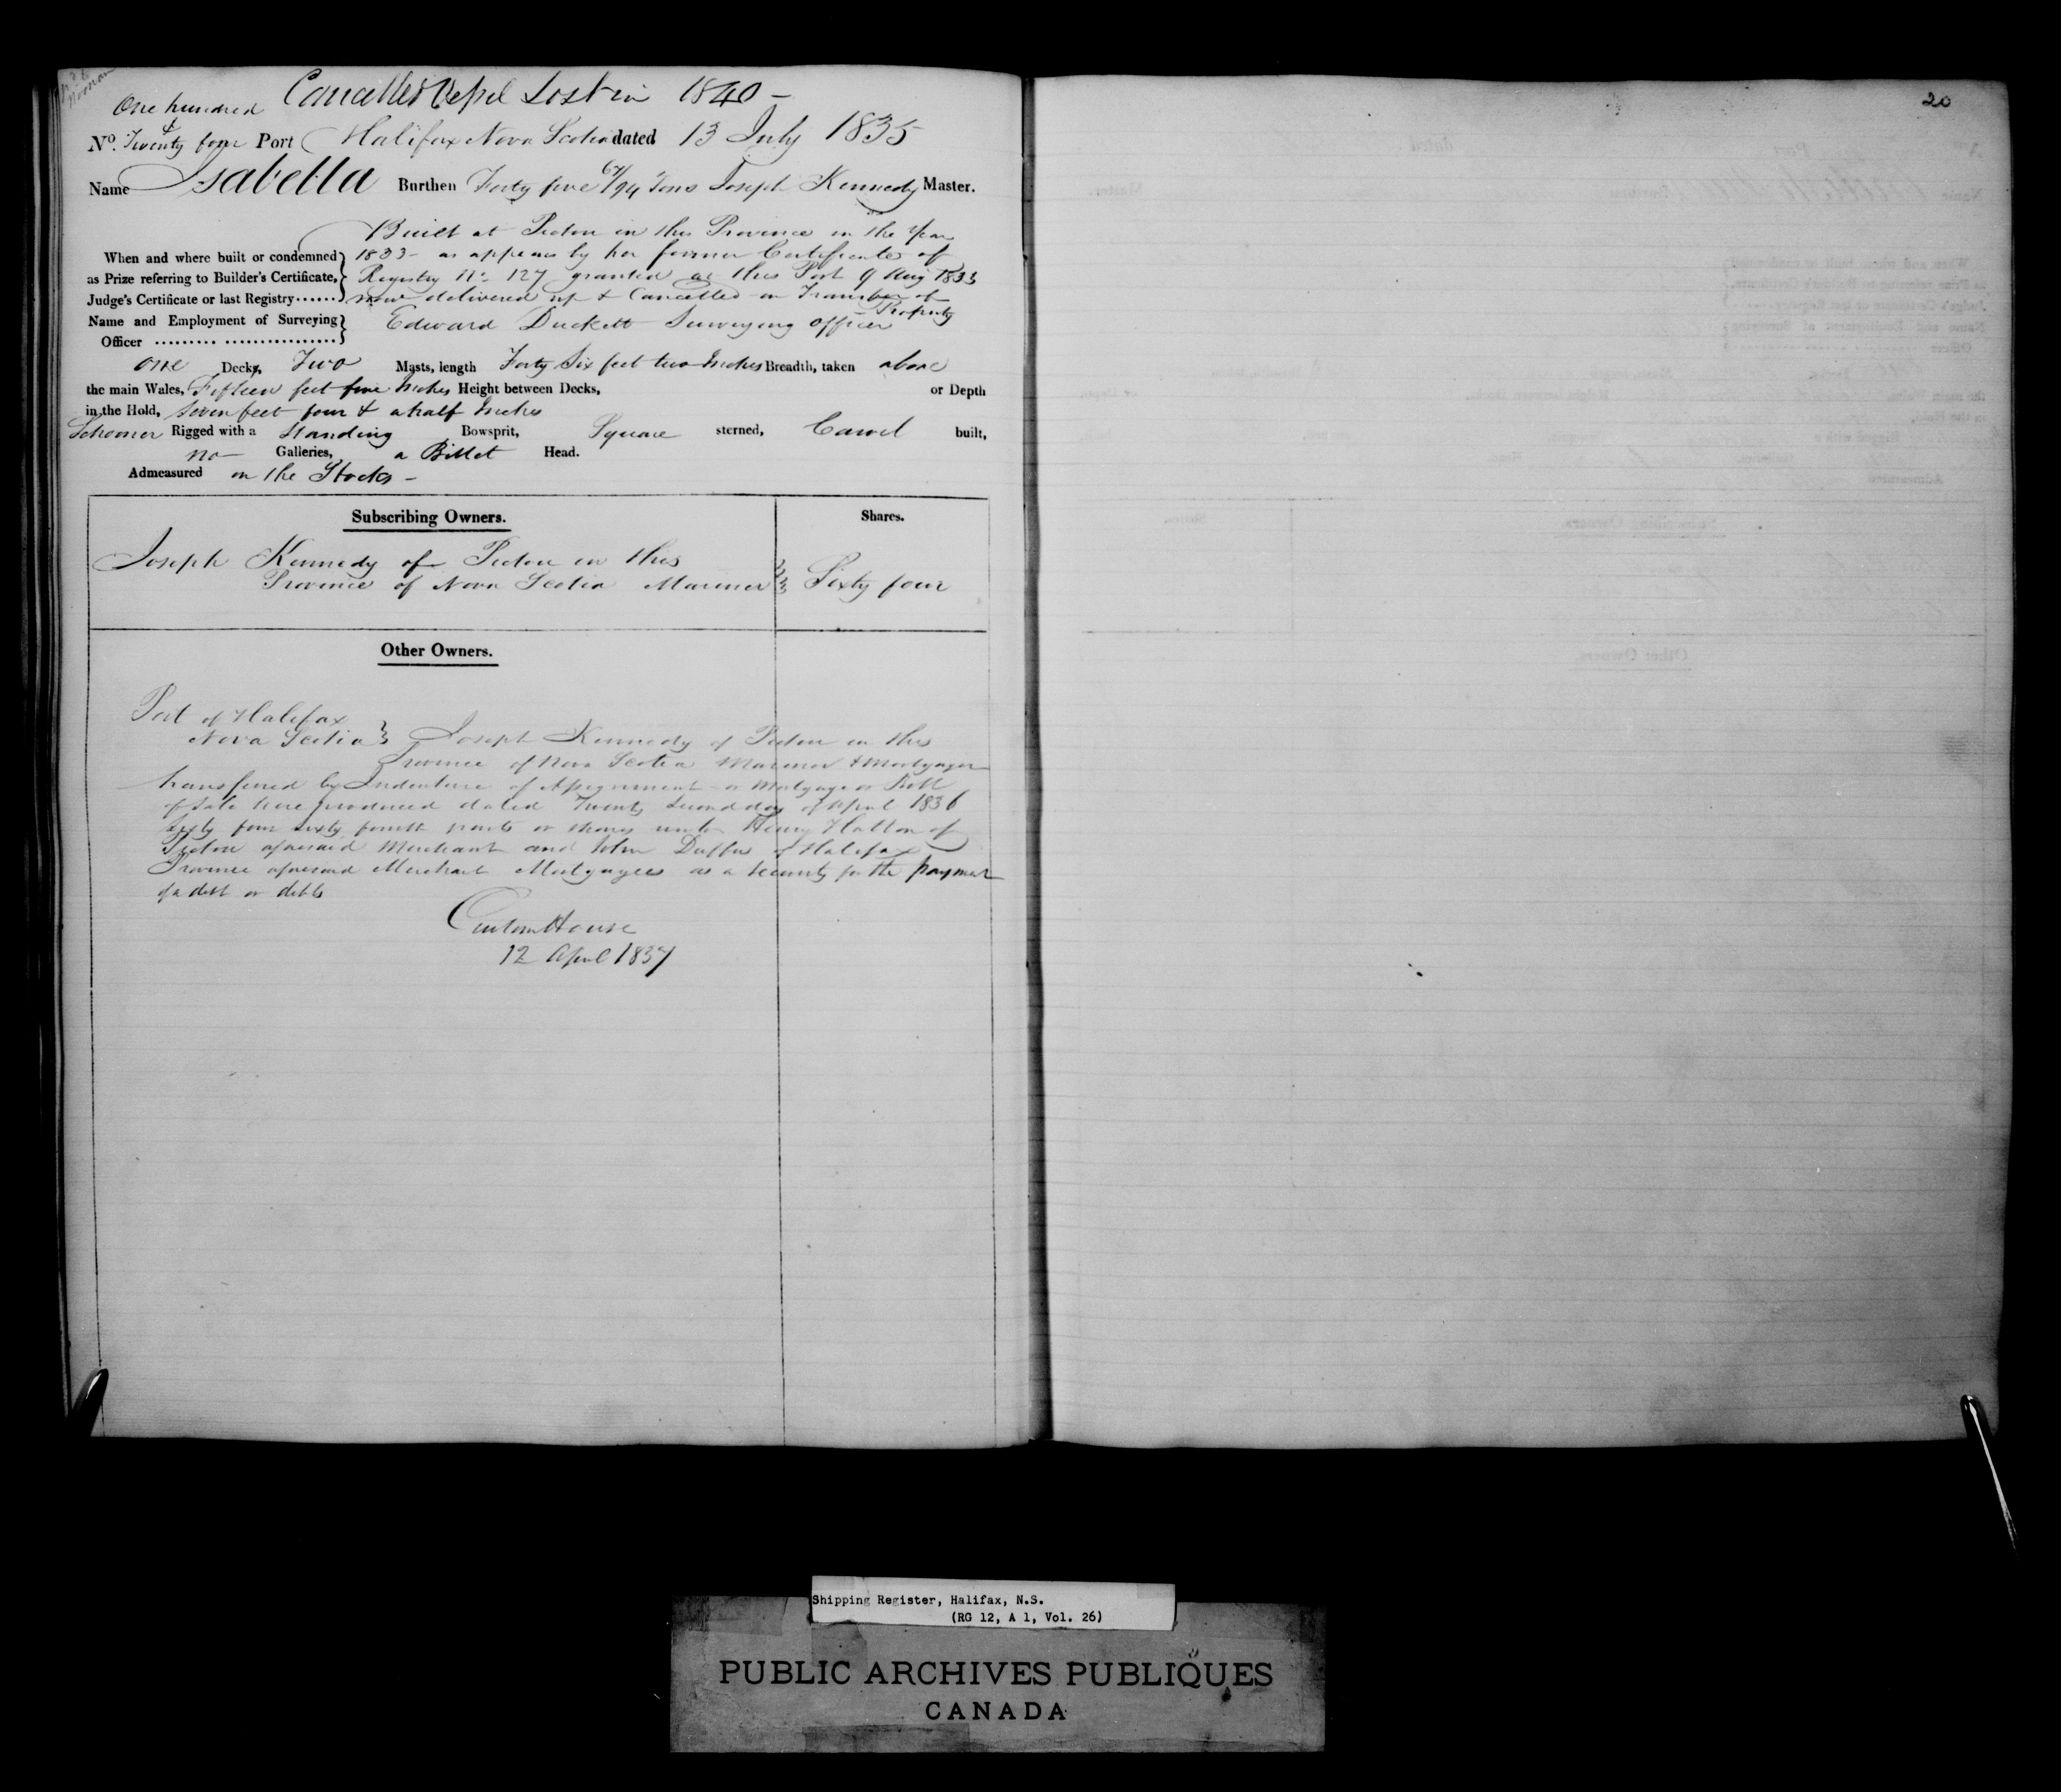 Cancelled Vessel Lost in 1840 -
One hundred
&
No. Twenty four Port Halifax Nova Scotia dated 13 July 1835
Name Isabella Burthen Forty five 67/94 Tons Joseph Kennedy Master.
Built at Pictou in this Province in the Year
When and where built or condemned 1833 - as appears by her former Certificate of
as Prize referring to Builder's Certificate, Registry No. 127 granted at this Port 9 Aug 1833
Judge's Certificate or last Registry...... now delivered up & Cancelled on Transfer of
Property
Name and Employment of Surveying Edward Duckett Surveying officer
Officer ......... ................
One Decks, Two Masts, length Forty Six feet two Inches Breadth, taken above
the main Wales, Fifteen feet five Inches Height between Decks, or Depth
in the Hold, Seven feet four & a half Inches
Schooner Rigged with a Standing Bowsprit, Square sterned, Carvel built,
no Galleries, a Billet Head.
Admeasured on the Stocks -
Subscribing Owners. Shares.
Joseph Kennedy of Pictou in this
Province of Nova Scotia Mariner Sixty four
Other Owners.
Port of Halifax
Nova Scotia Joseph Kennedy of Pictou in this
Province of Nova Scotia Mariner & Mortgager
transferred by Indenture of Assignment or Mortgage or Bill
of Sale here produced dated Twenty Second day of April 1836
Sixty four sixty fourth parts or shares unto Henry Hatton of
Pictou aforesaid Merchant and John Duffus of Halifax
Province aforesaid Merchant Mortgagees as a Security for the payment
of a debt or debts
Custom House
12 April 1837
20
Shipping Register, Halifax, N.S.
(RG 12, A 1, Vol. 26)
PUBLIC ARCHIVES PUBLIQUES
CANADA